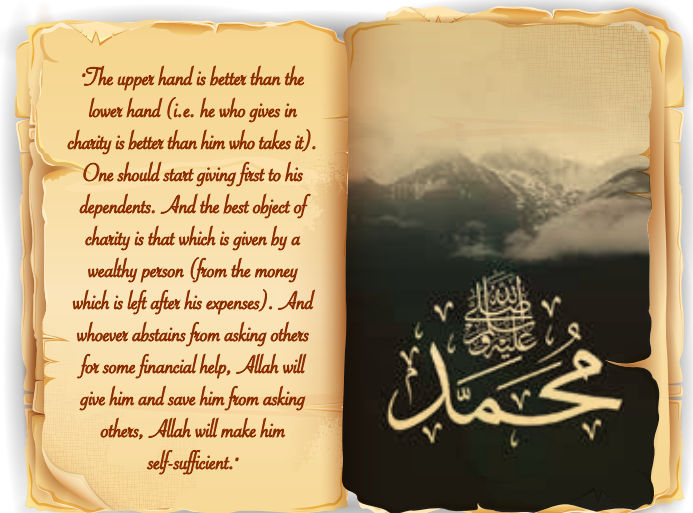 "The upper hand is better than the
lower hand (i.e. he who gives in
charity is better than him who takes it).
One should start giving first to his
dependents. And the best object of
charity is that which is given by a
wealthy person (from the money
which is left after his expenses). And
whoever abstains from asking others
for some financial help, Allah will
give him and save him from asking
others, Allah will make him
self-sufficient."
صلى الله عليه وسلم
محمد